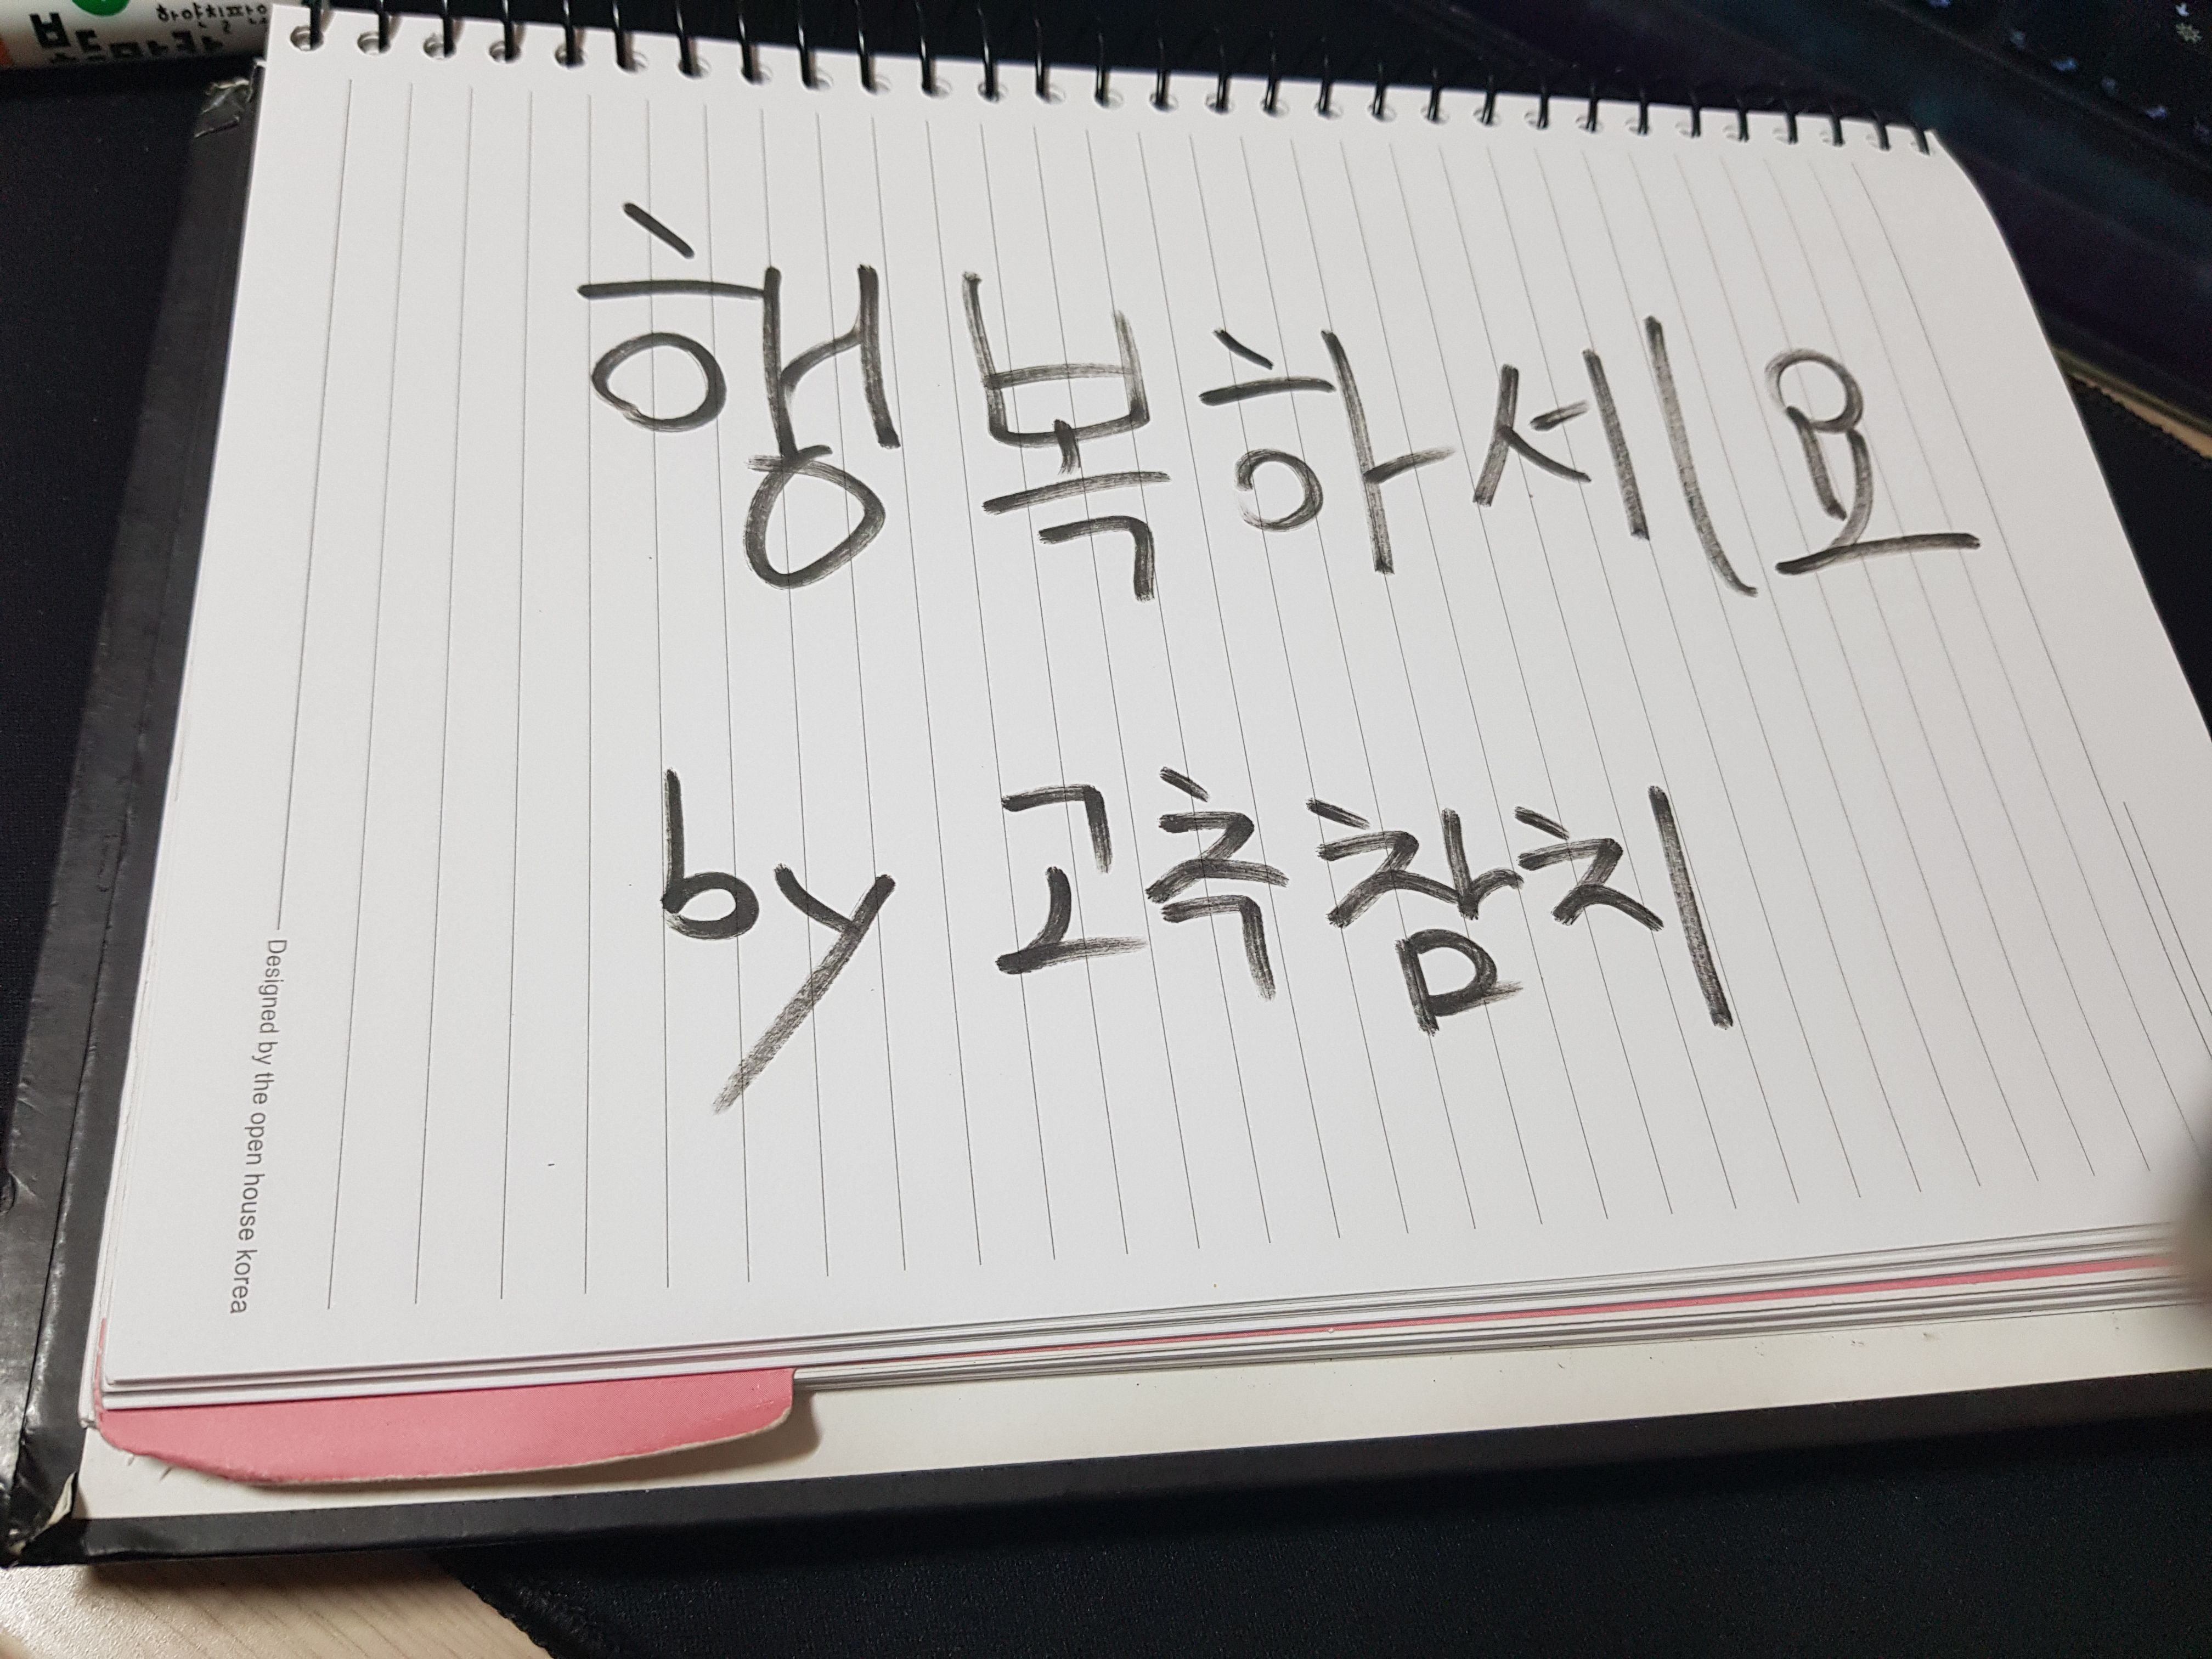 하얀칠판용
보드마카
행복하세요
by 고추참치
Designed by the open house korea